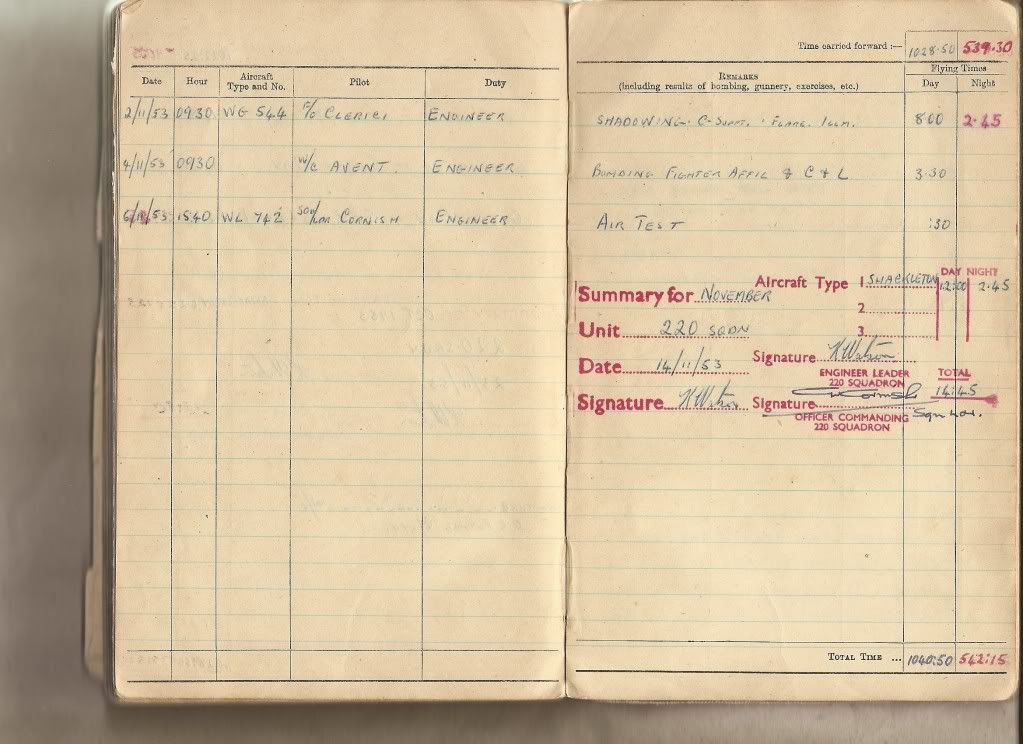 Time carried forward :— 1028·50 539·30
Date Hour Aircraft Type and No. Pilot Duty
REMARKS
(including results of bombing, gunnery, exercises, etc.)
Flying Times
Day Night
2/11/53 0930 WG 544 F/O CLERICI ENGINEER SHADOWING. C-SUPT. FLARE. ILLM. 8·00 2·45
4/11/53 0930 W/C AVENT. ENGINEER BOMBING FIGHTER AFFIL & C & L 3·30
6/11/53 1540 WL 742 SQN/LDR CORNISH ENGINEER AIR TEST :30
Summary for NOVEMBER Aircraft Type 1 SHACKLETON DAY NIGHT
12:00 2·45
2
Unit 220 SQDN 3
Date 14/11/53 Signature KWatson
ENGINEER LEADER
220 SQUADRON
TOTAL
14:45
Signature KWatson Signature Cornish
Sqn Ldr.
OFFICER COMMANDING
220 SQUADRON
TOTAL TIME ... 1040:50 542:15